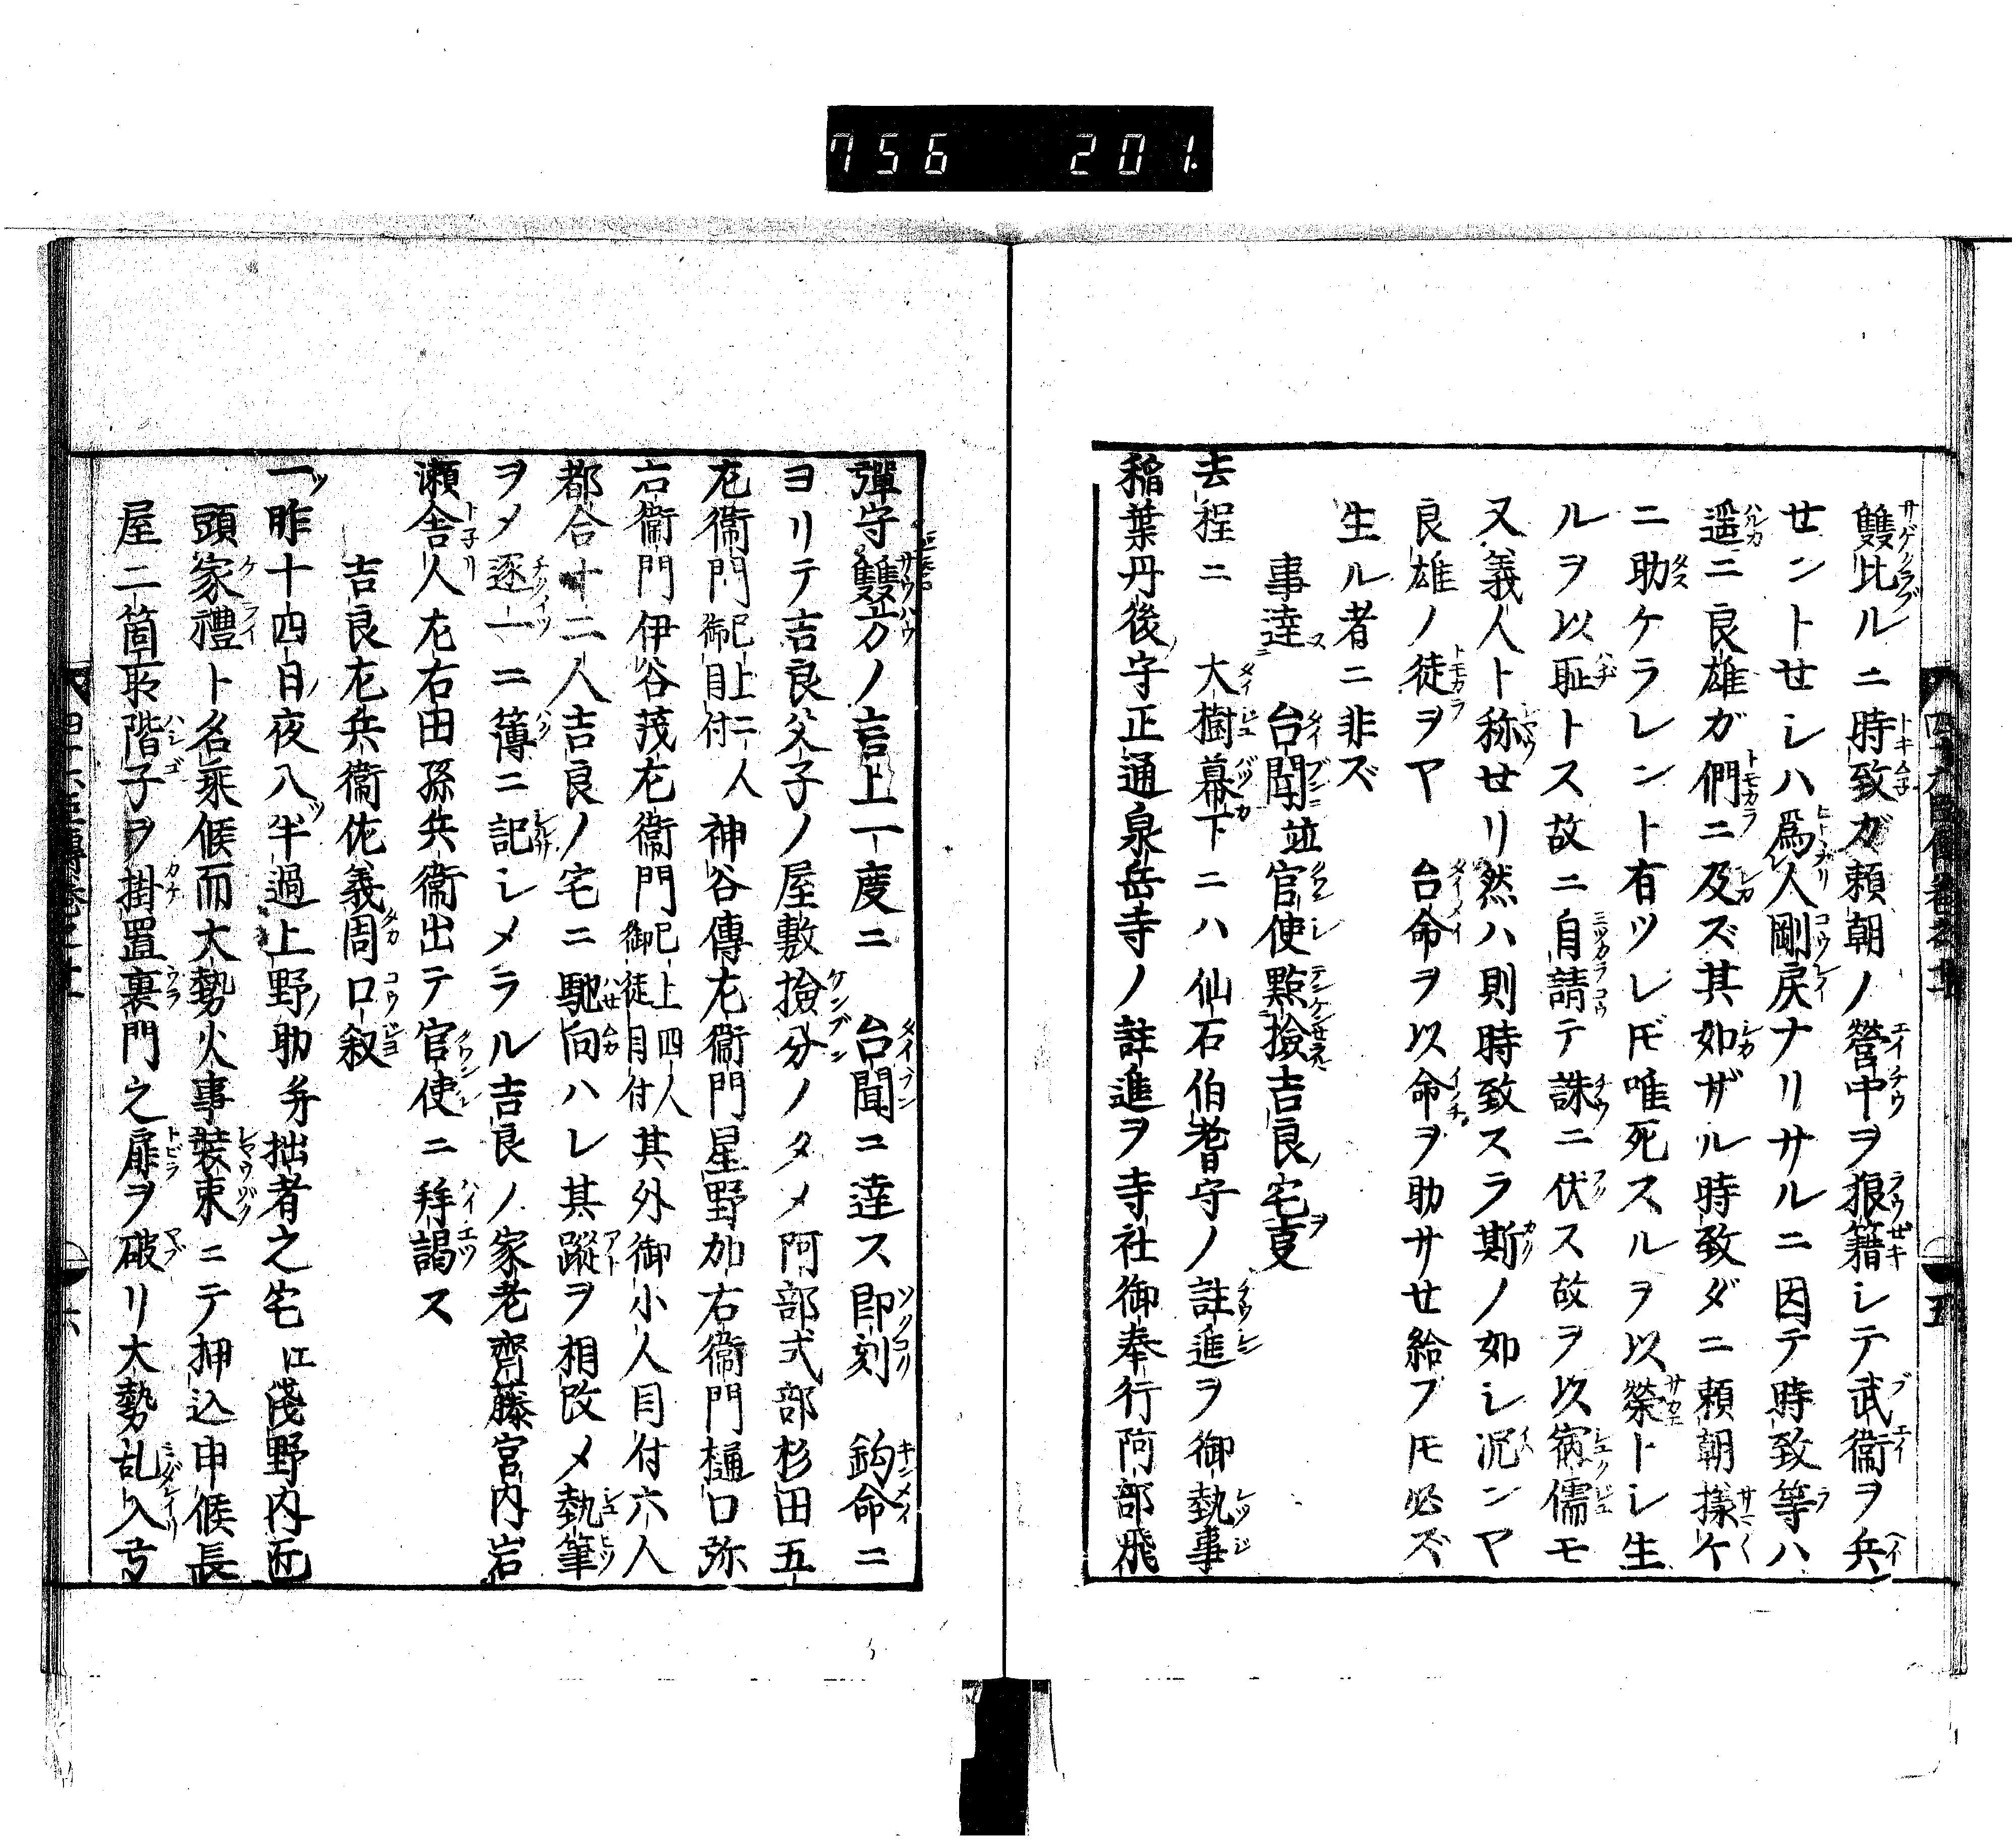 756 201
雙比ルニ時致ガ頼朝ノ營中ヲ狼籍シテ武衞ヲ兵
せントせシハ爲人剛戻ナリサルニ因テ時致等ハ
遥ニ良雄ガ們ニ及ズ其如ザル時致ダニ頼朝揉ケ
ニ助ケラレント有ツレ𪜈唯死スルヲ以榮トシ生
ルヲ以耻トス故ニ自請テ誅ニ伏ス故ヲ以病儒モ
又義人ト称せリ然ハ則時致スラ斯ノ如シ况ンヤ
良雄ノ徒ヲヤ 台命ヲ以命ヲ助サせ給フ𪜈必ズ
生ル者ニ非ズ
事達 台聞並官使點撿吉良宅叓
去程ニ 大樹幕下ニハ仙石伯耆守ノ註進ヲ御執事
稲葉丹後守正通泉岳寺ノ註進ヲ寺社御奉行阿部飛
彈守雙方ノ言上一度ニ 台聞ニ達ス即刻 鈞命ニ
ヨリテ吉良父子ノ屋敷撿分ノタメ阿部式部杉田五
左衞門 已上二人御目付 神谷傳左衞門星野加右衞門樋口弥
右衞門伊谷茂左衞門 已上四人御徒目付 其外御小人目付六人
都合十二人吉良ノ宅ニ馳向ハレ其蹤ヲ相改メ執筆
ヲメ逐一ニ簿ニ記シメラル吉良ノ家老齊藤宮内岩
瀬舎人左右田孫兵衞出テ官使ニ拜謁ス
吉良左兵衞佐義周口叙
一ツ昨十四日ノ夜八ツ半過上野ノ助并拙者之宅江淺野内匠
頭家禮ト名乘候而大勢火事裝束ニテ押込申候長
屋二箇所階子ヲ掛置裏門之扉ヲ破リ大勢乱入